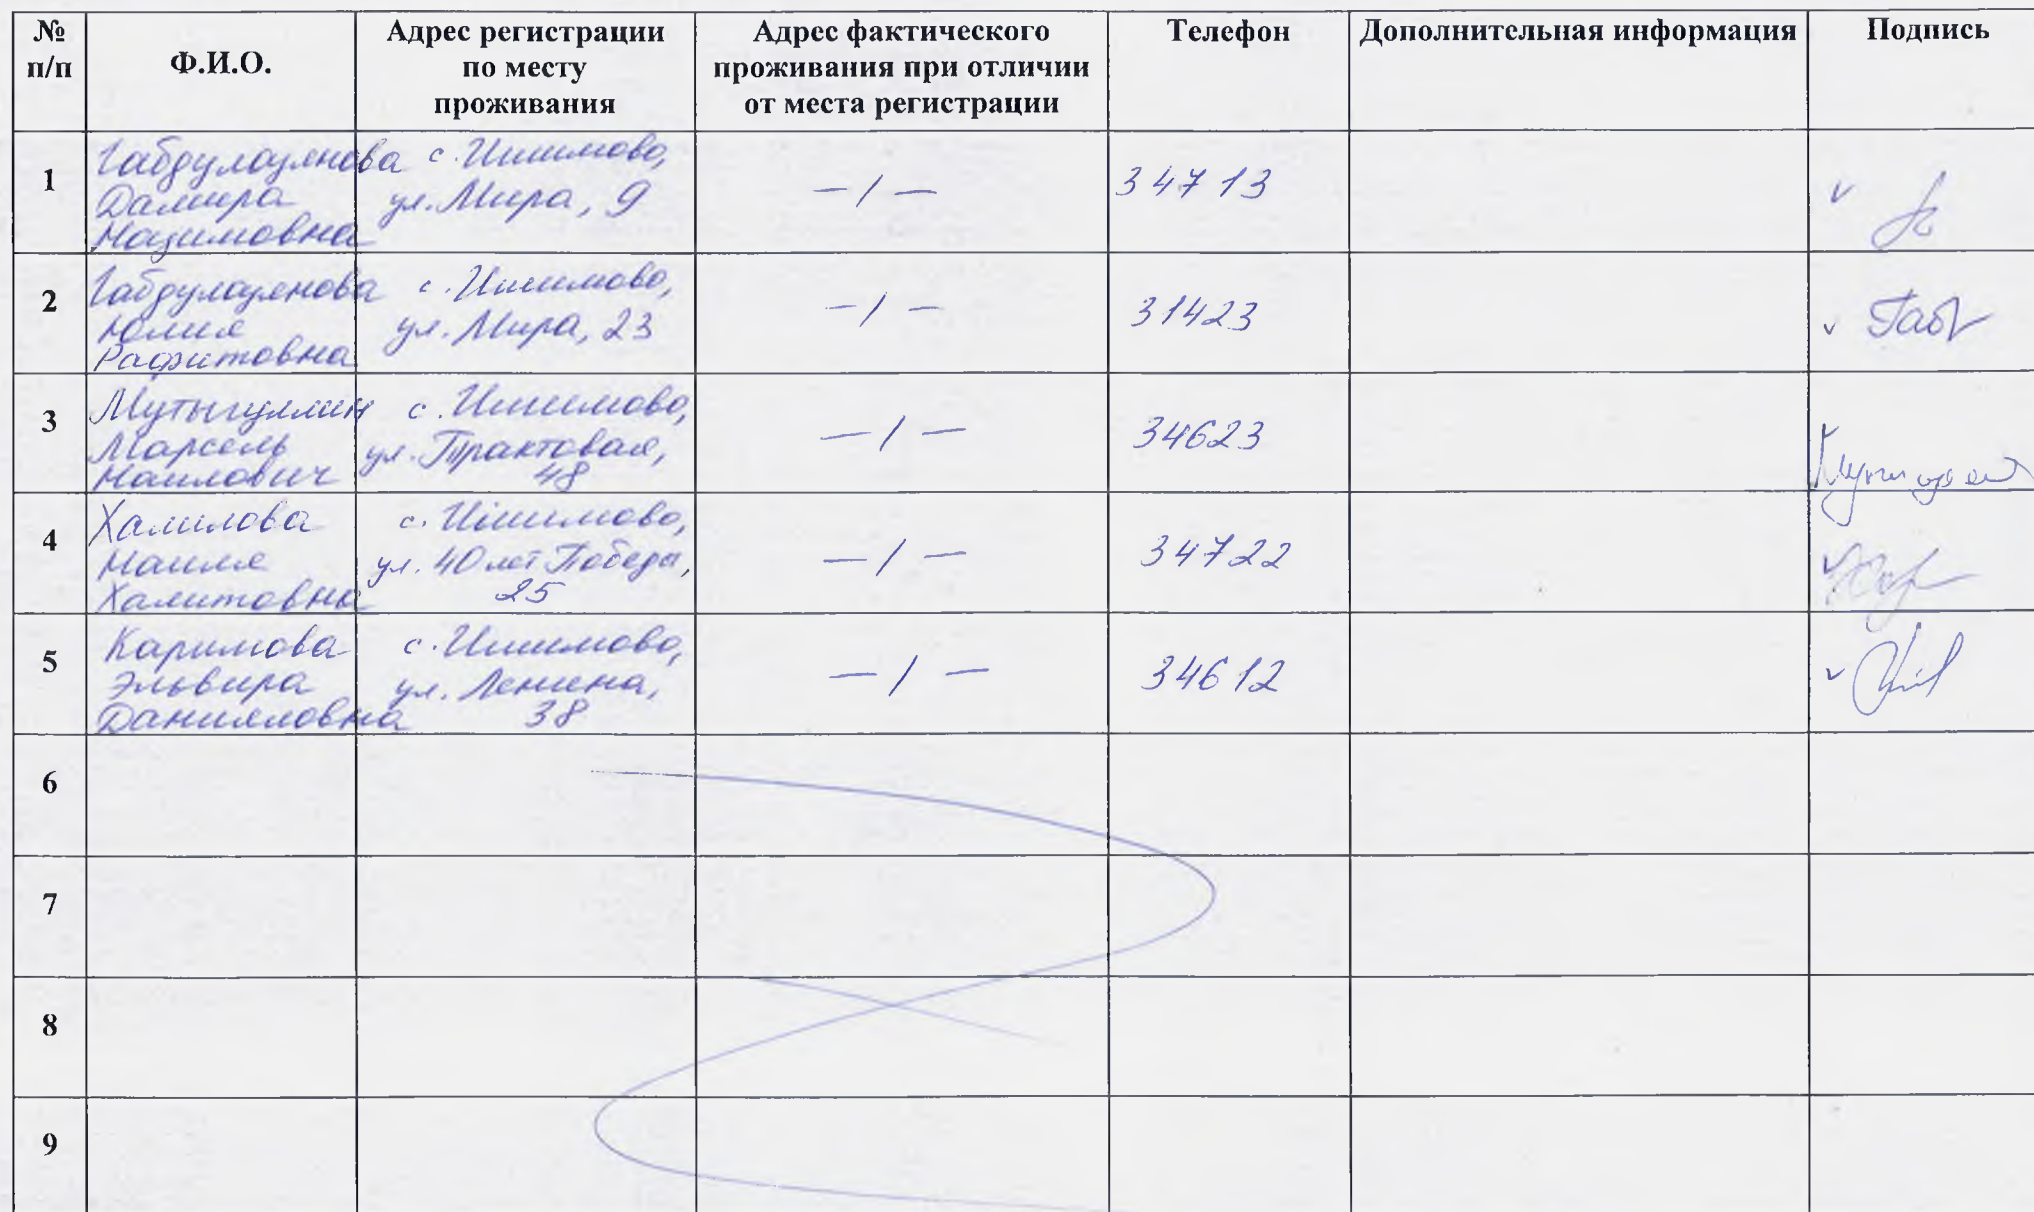 № п/п
Ф.И.О.
Адрес регистрации по месту проживания
Адрес фактического проживания при отличии от места регистрации
Телефон
Дополнительная информация
Подпись
1
Габдулаянова
Дамира
Нагимовна
с. Ишимово,
ул. Мира, 9
—/—
34713
2
Габдулаянова
Юлия
Рафитовна
с. Ишимово,
ул. Мира, 23
—/—
31423
Габ
3
Мутыгуллин
Марсель
Наилович
с. Ишимово,
ул. Трактовая,
48
—/—
34623
4
Хамилова
Наиля
Хамитовна
с. Ишимово,
ул. 40 лет Победы,
25
—/—
34722
5
Каримова
Эльвира
Данияловна
с. Ишимово,
ул. Ленина,
38
—/—
34612
6
7
8
9